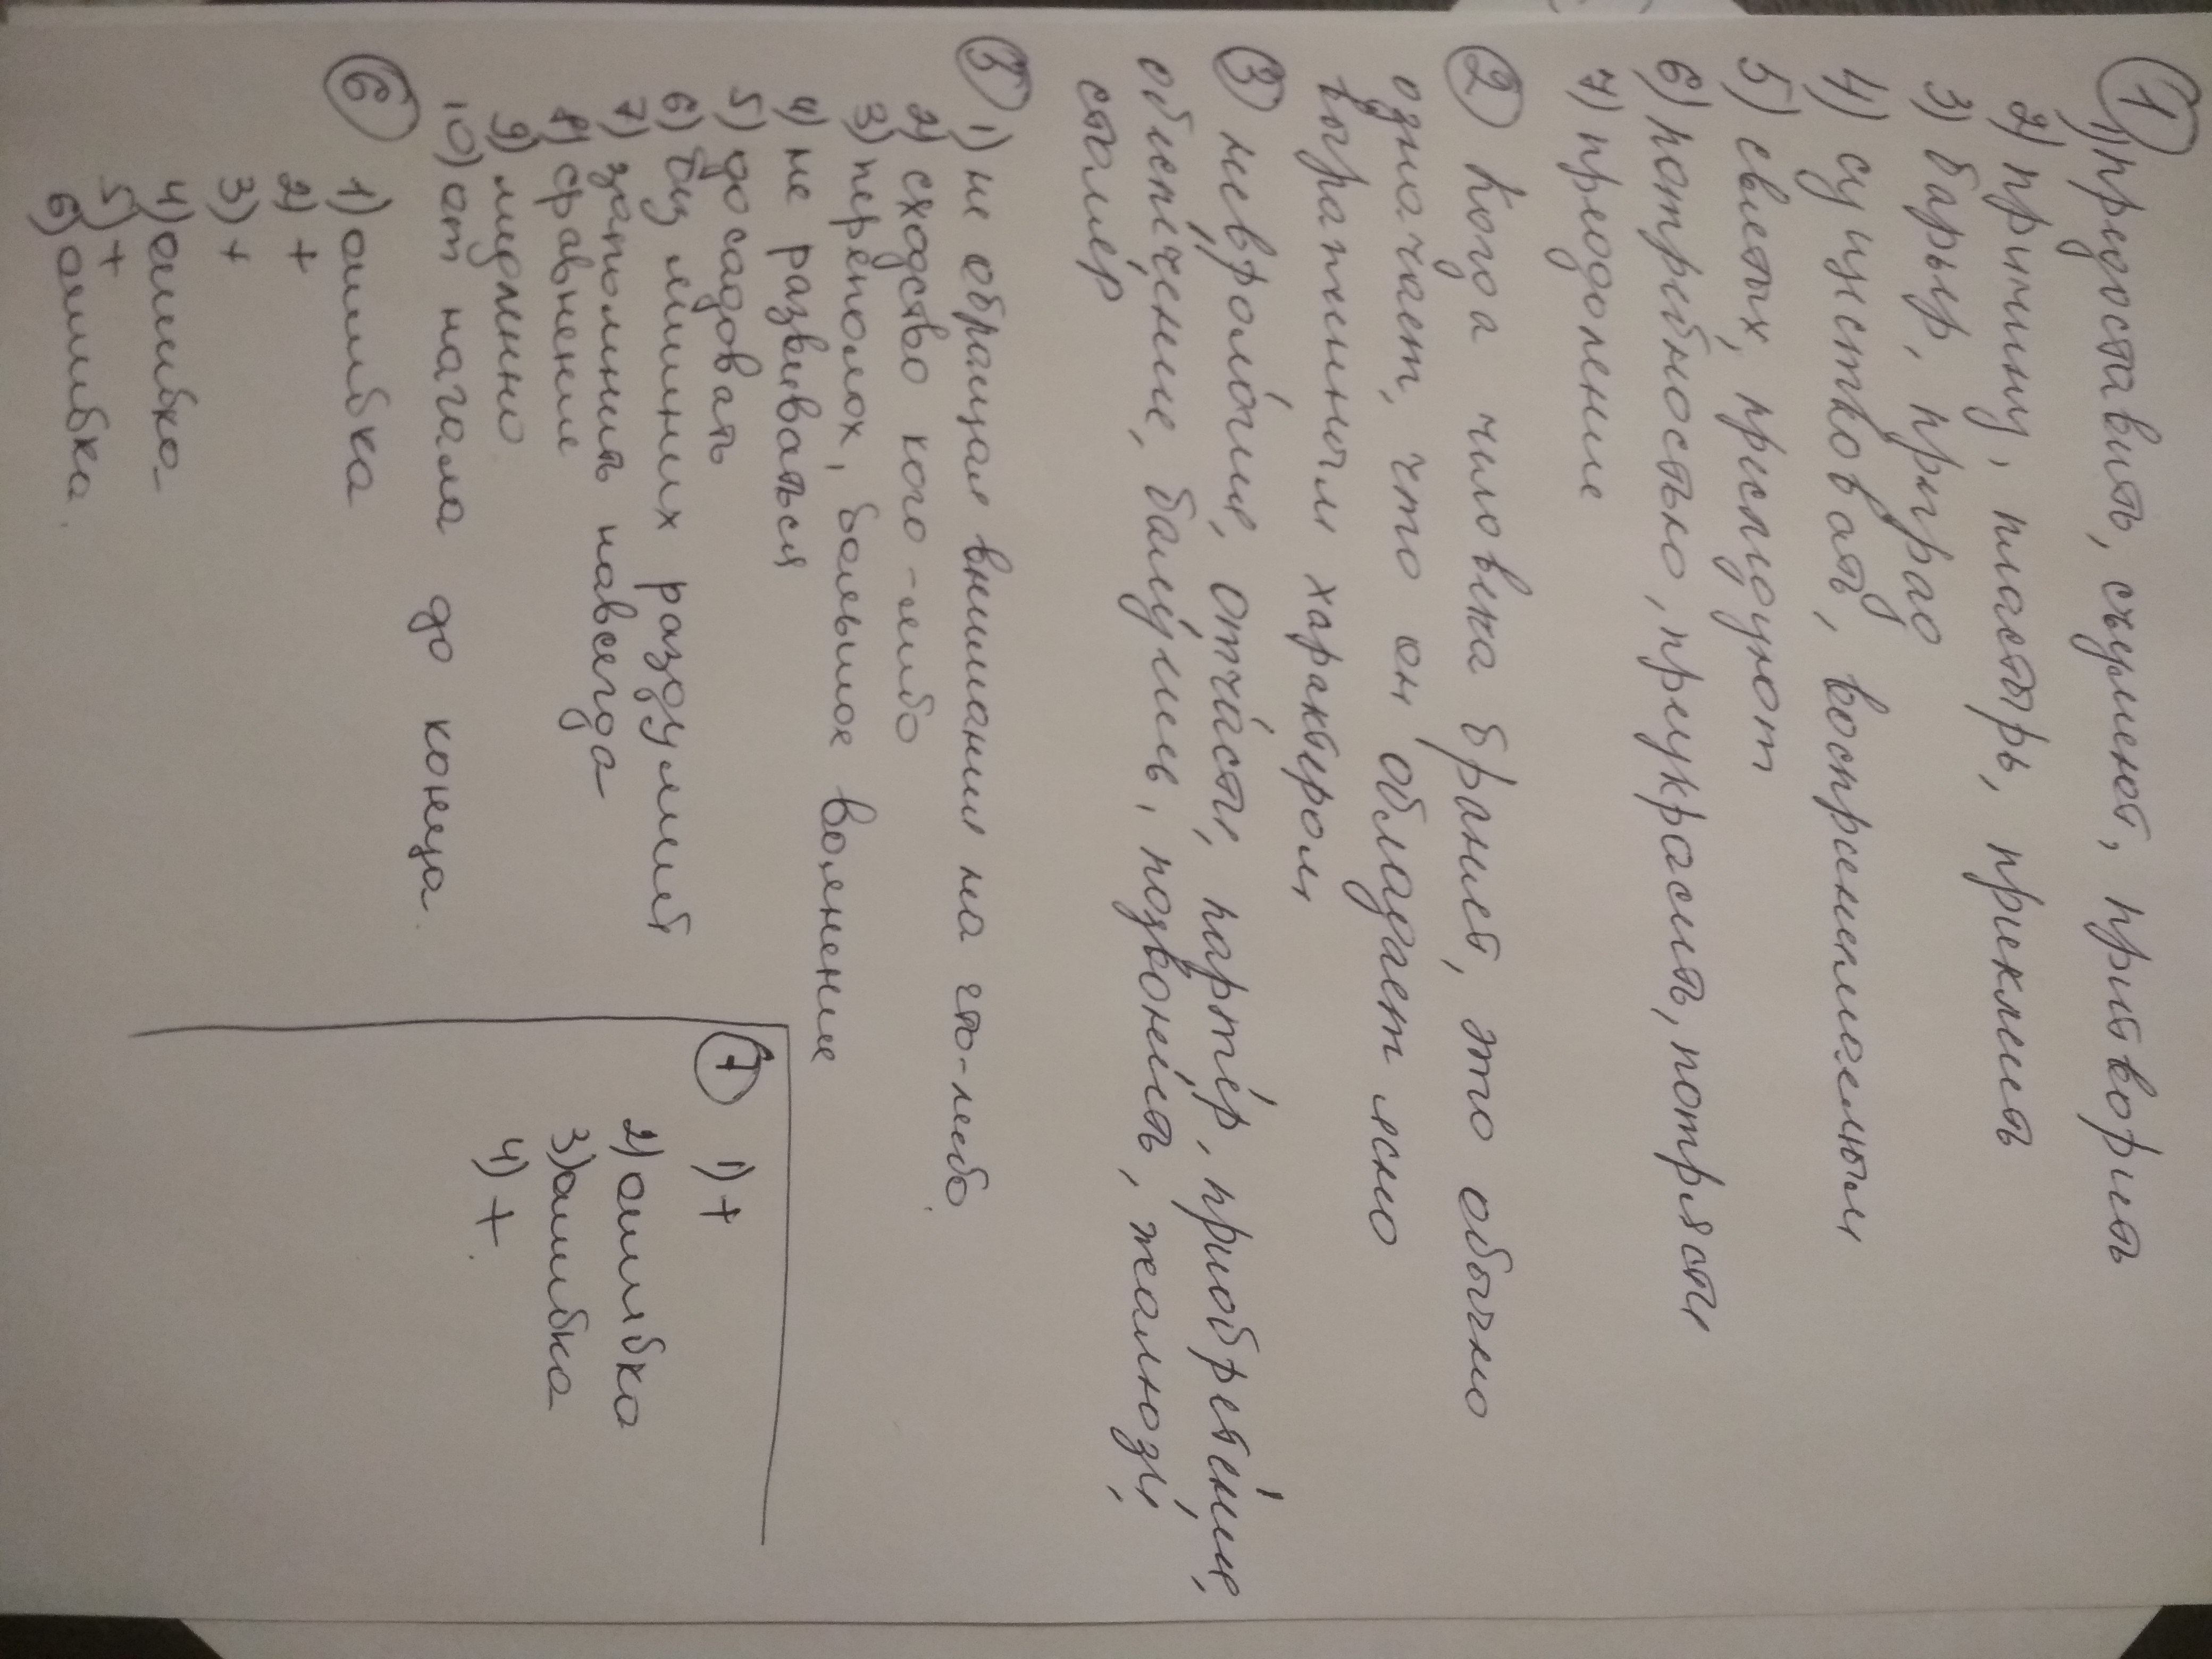 1
1) предоставить, съумеют, притворить
2) причину, пластырь, приклеить
3) барьер, преграо
4) существовать, восприимчивым
5) святых, преследуют
6) потребностью, приукрасить, потрясти
7) преодоление
2 Когда человека бранят, это обычно
означает, что он обладает ясно
выраженным характером
3 неврология, отчасти, партер, приобретение,
обеспечение, балуешь, позвонить, жалюзи,
столяр
5 1) не обращая внимания на что-либо.
2) сходство кого-либо
3) переполох, большое волнение
4) не развиваться
5) досадовать
6) без лишних раздумий
7) запомнить навсегда
8) сравнение
9) медленно
10) от начала до конца
6
1) ошибка
2) +
3) +
4) ошибка
5) +
6) ошибка.
7 1) +
2) ошибка
3) ошибка
4) +